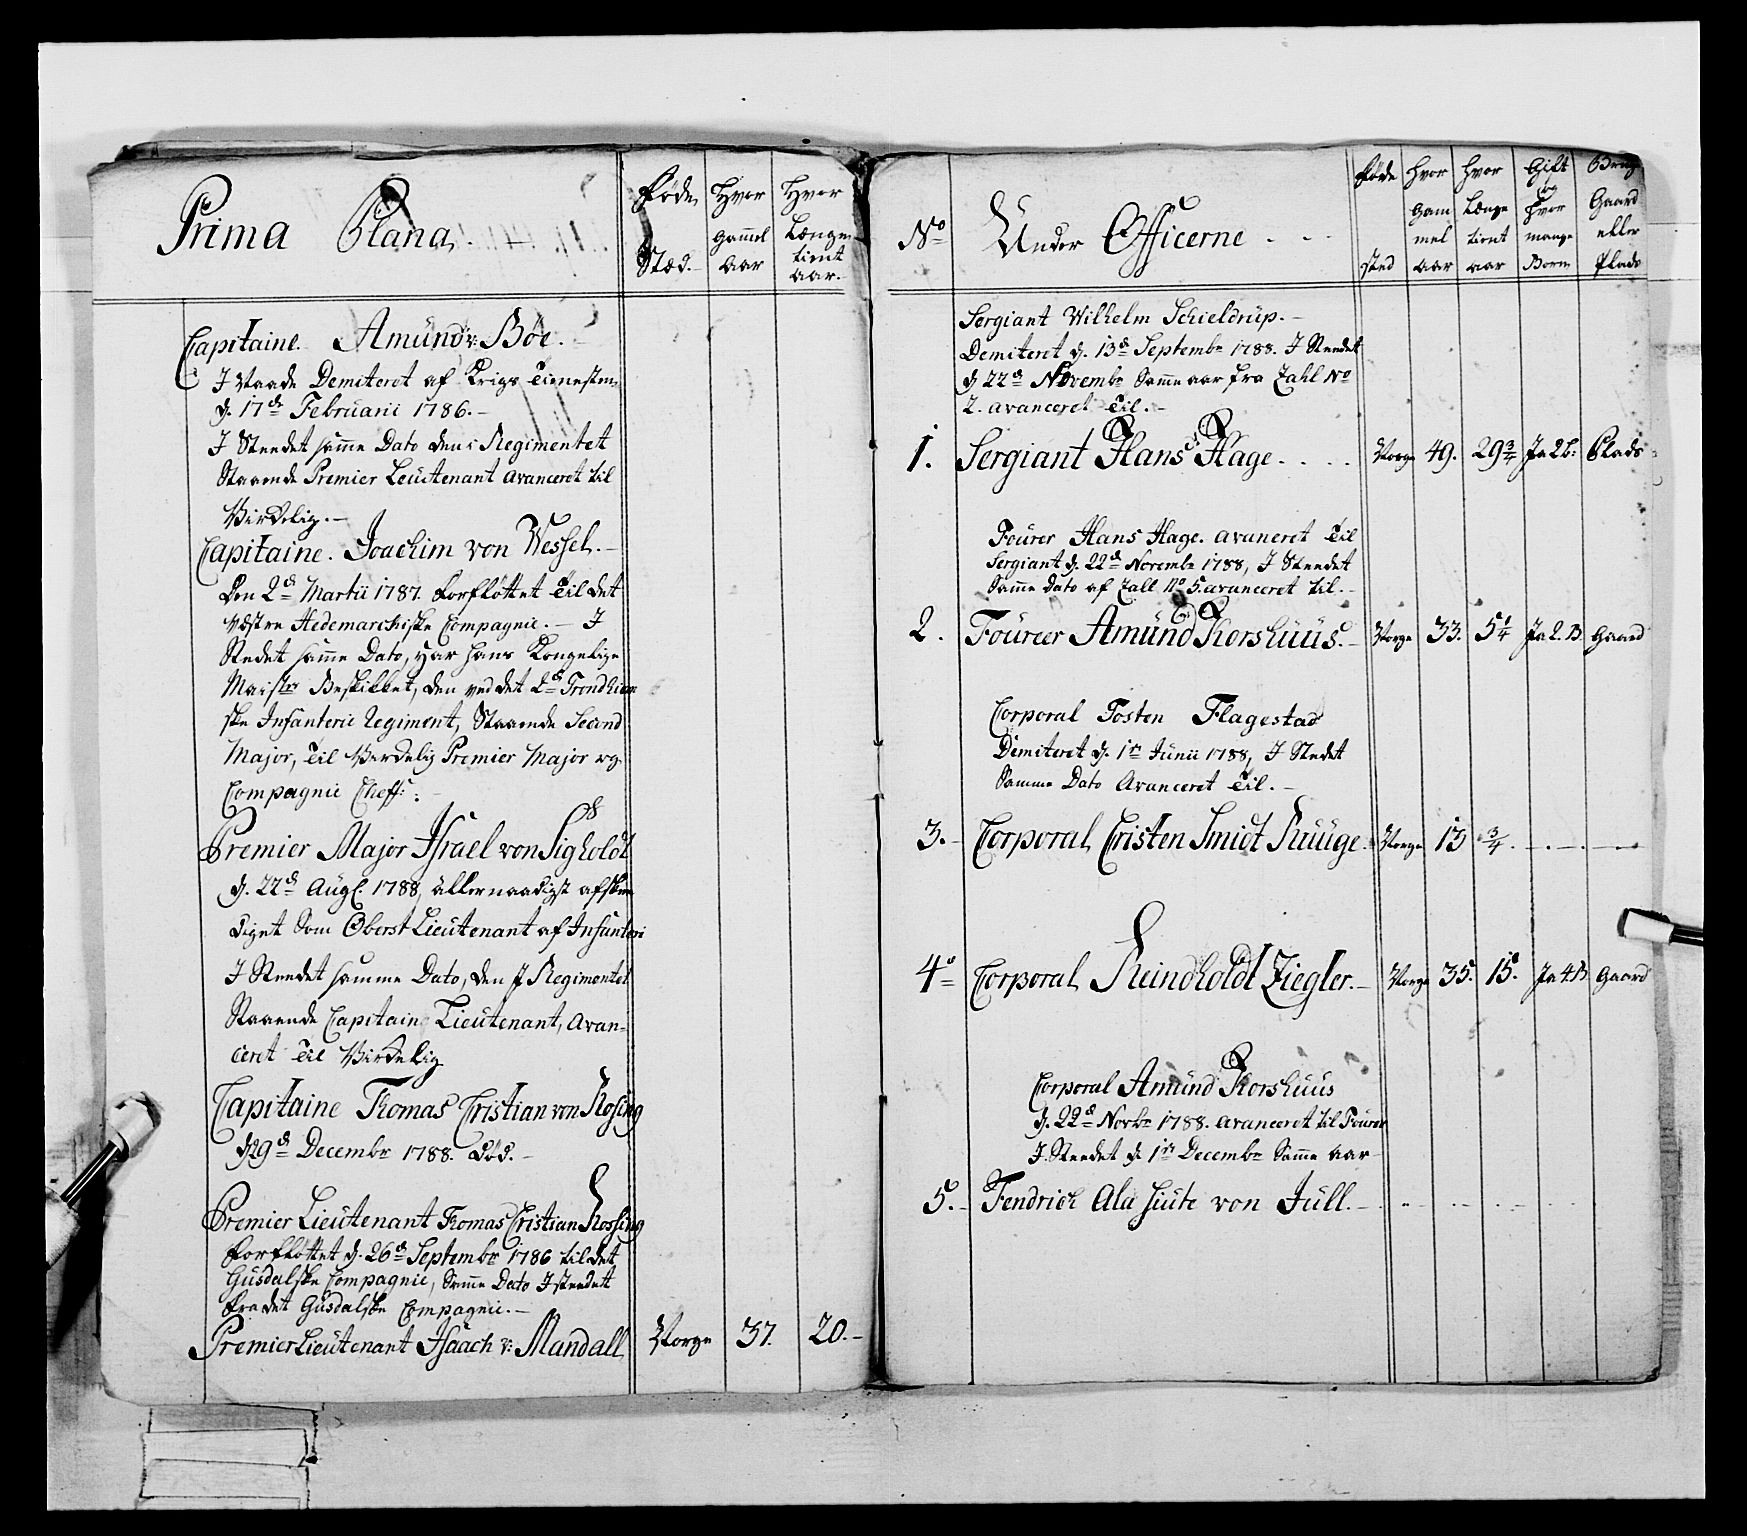 Prima Plana.
Føde Stæd.
Hvor Gammel Aar
Hvor Længe tient aar.
Capitaine. Amund v: Bøe.
I Naade Demiteret af Krigs Tienesten
d. 17de Februarii 1786.
I Steedet samme Dato den i Regimentet
Staaende Premier Leutenant avanceret til
Virkelig.
Capitaine. Joachim von Wessel.
Den 2d Martii 1787. forfløttet til det
Væstre Hedemarchiske Compagnie. I
Stedet samme Dato, har Hans Kongelige
Maist: Beskikket, den ved det 2d Trondhiem
ske Infanterie Regiment, Staaende Second
Major, til Virkelig Premier Major og
Compagnie Cheff:
Premier Major Israel von Sigholdt
d. 22d Augl. 1788, allernaadigst afske
diget Som Oberst Lieutenant af Infanteri
I Steedet samme Dato, den I Regimentet
Staaende Capitain Lieutenant, avan-
ceret til Virkelig
Capitaine Thomas Cristian von Rosing
d. 29d Decembr 1788. død.
Premier Lieutenant Thomas Cristian Rossing
forfløttet d. 26d Septembr 1786 til det
Gusdalske Compagnie, Samme Dato I steedet
fra det Gusdalske Compagnie.
Premier Lieutenant Isaach v: Mandall Norge 37. 20.
No Under Officerne
Føde sted
hvor Gammel aar
hvor Længe tient aar
Gift og hvor mange Børn
Brug Gaard eller Plads
Sergiant Wilhelm Schieldrup.
Demiteret d. 13d Septembr 1788. I Steedet
d 22d Novembr Samme aar fra Tahl No
2. avanceret til.
1. Sergiant Hans Hage. Norge 49. 29 3/4 Ja 2b: Plads
Fourer Hans Hage. avanceret til
Sergiant d. 22d Novembr 1788, I Steedet
Samme Dato af Tall No 5. avanceret til.
2. Foureer Amund Korshuus. Norge 33. 5 1/4 Ja 2. B. Gaard
Corporal Tosten Flagestad
Demiteret d. 1n Junii 1788, I Stedet
Samme Dato Avanceret til.
3. Corporal Cristen Smidt Ruuge. Norge 13 3/4.
4. Corporal Reindholdt Ziegler. Norge 35. 15. Ja 4 B Gaard
Corporal Amund Korshuus
d. 22d Novbr 1788. avanceret til Fourer
I Steedet d. 1n Decembr Samme aar
5. Fendrich Ala Suite von Jull.